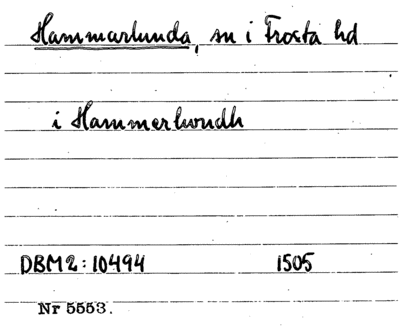 Hammarlunda, sn i Frosta hd
i Hammerlwndh
DBM2:10494 1505
Nr 5553.